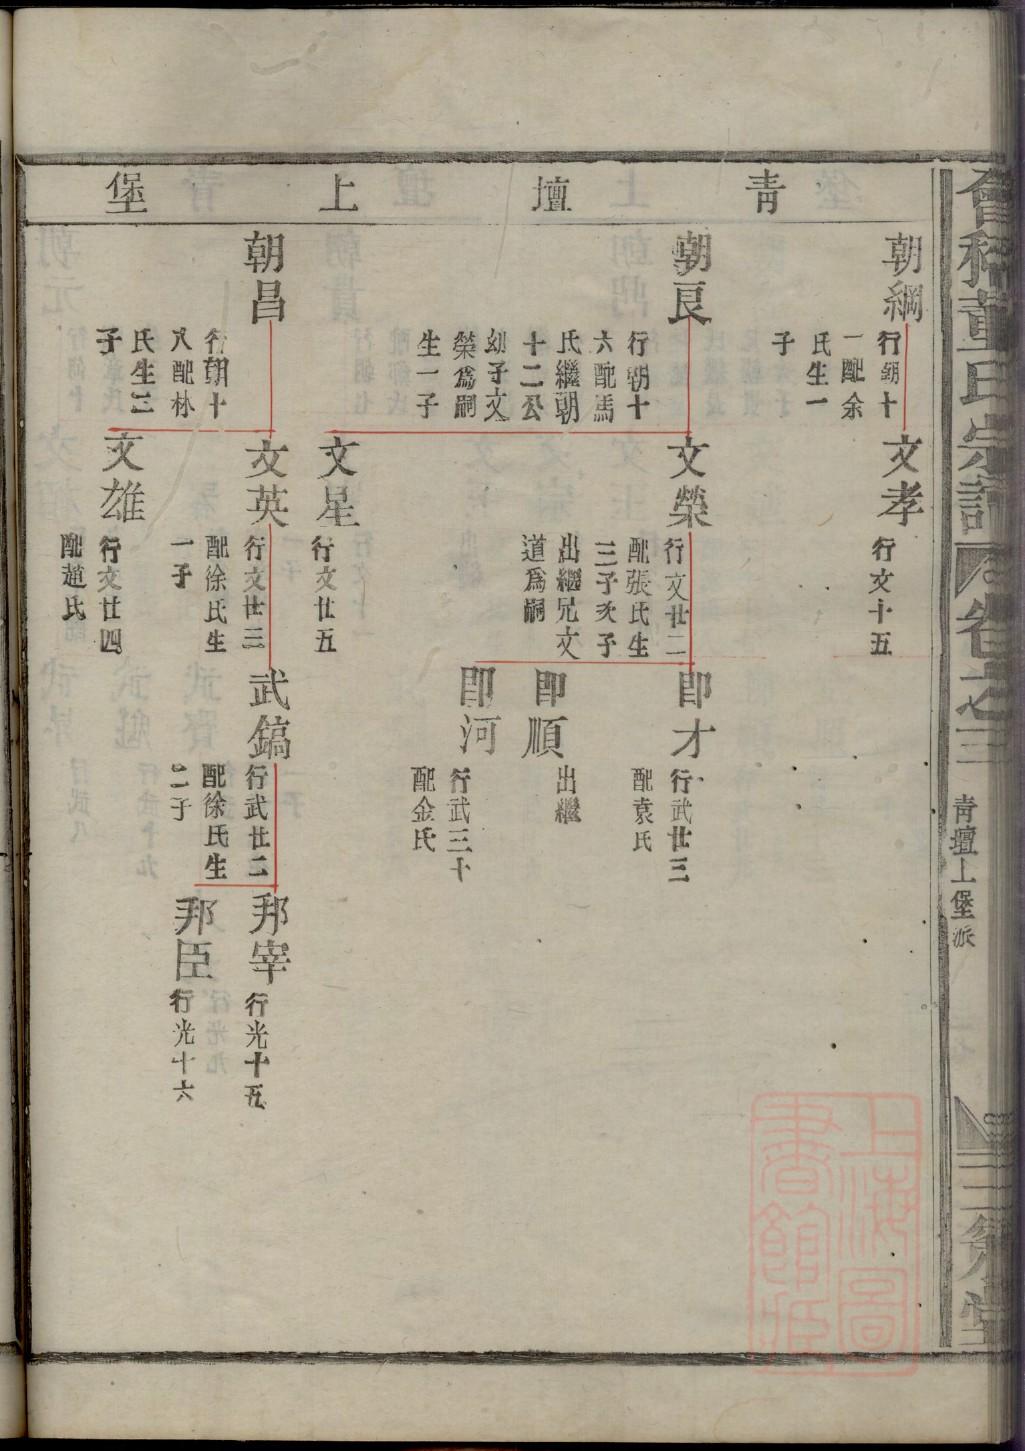 青壇上堡
朝綱
行朝十
一配余
氏生一
子
文孝
行文十五
朝良
行朝十
六配馮
氏繼朝
十二公
幼子文
榮爲嗣
生一子
文榮
行文廿二
配張氏生
三子次子
出繼兄文
道爲嗣
卽才
行武廿三
配袁氏
卽順
出繼
卽河
行武三十
配金氏
文星
行文廿五
朝昌
行朝十
八配林
氏生三
子
文英
行文廿三
配徐氏生
一子
武鎬
行武廿二
配徐氏生
二子
邦宰
行光十五
邦臣
行光十六
文雄
行文廿四
配趙氏
會稽董氏宗譜
卷之三
青壇上堡派
三策堂
上海圖
書館藏